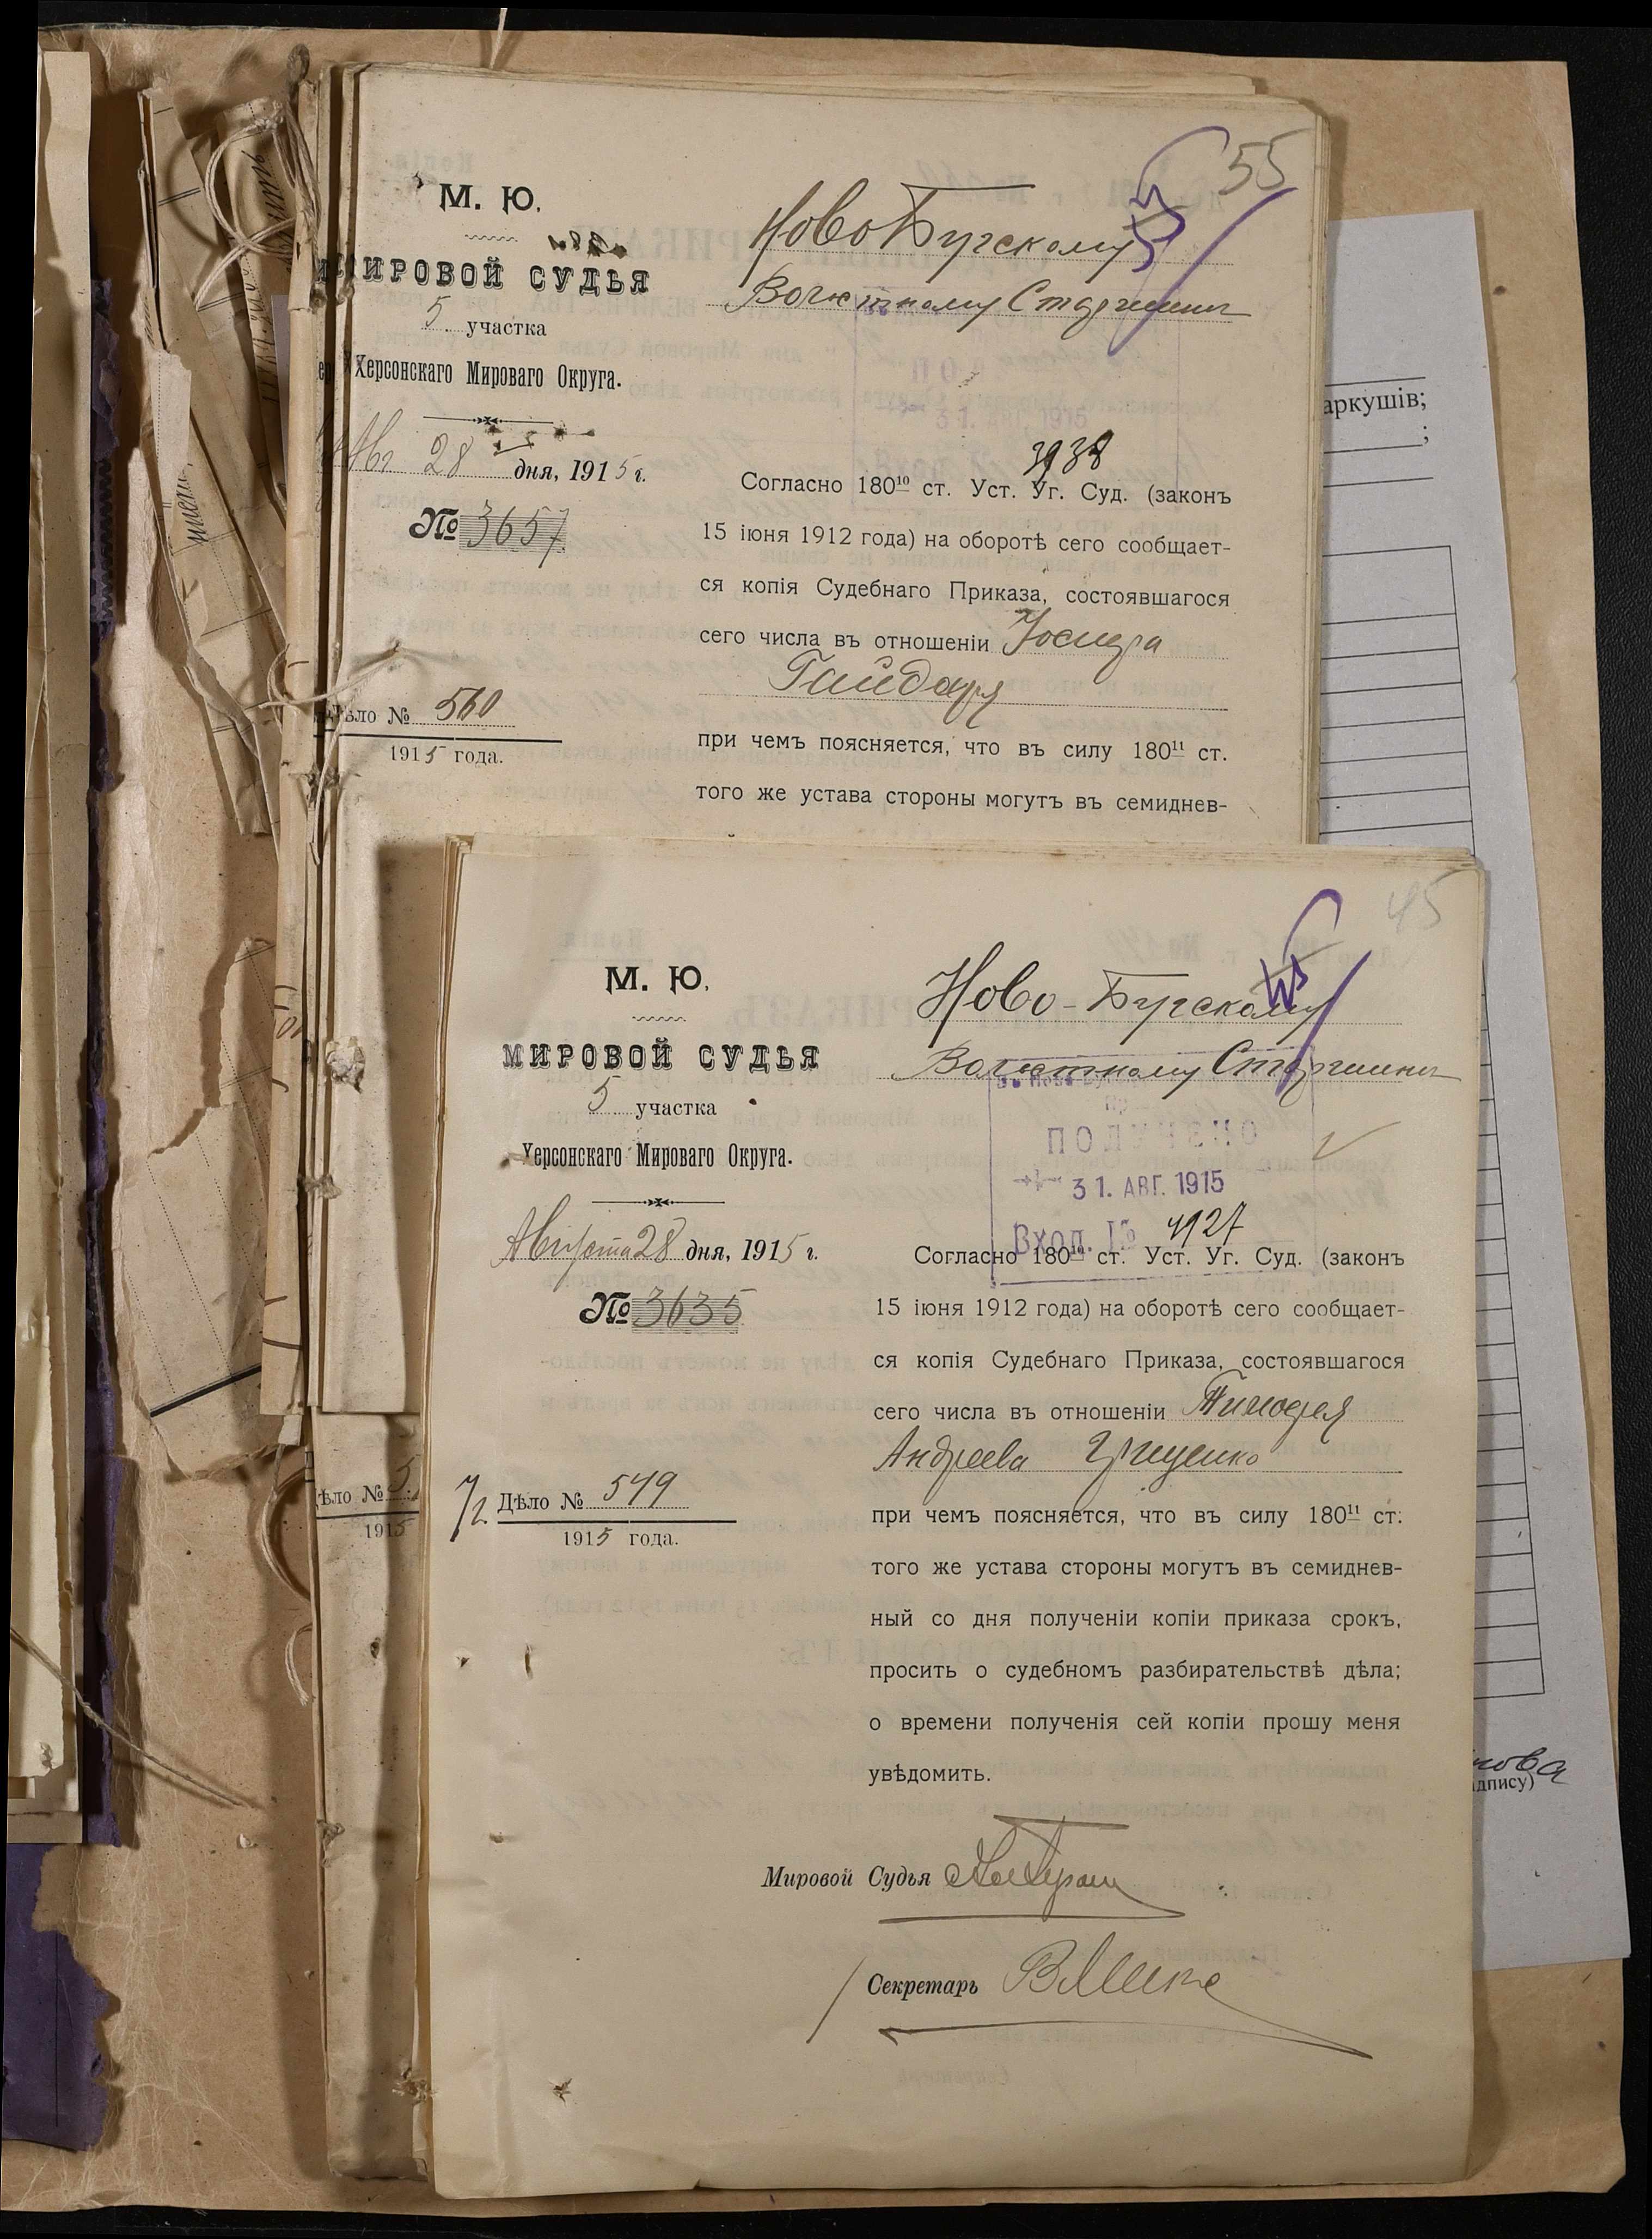 55
М. Ю.
МИРОВОЙ СУДЬЯ
5 участка
Херсонскаго Мироваго Округа.
Авг 28 дня, 1915 г.
№ 3657
Дѣло № 560
1915 года.
Ново Бугскому
Волостному Старшинѣ
31. АВГ. 1915
3938
Согласно 180¹⁰ ст. Уст. Уг. Суд. (законъ
15 іюня 1912 года) на оборотѣ сего сообщает-
ся копія Судебнаго Приказа, состоявшагося
сего числа въ отношеніи Іосифа
Гайдаря
при чемъ поясняется, что въ силу 180¹¹ ст.
того же устава стороны могутъ въ семиднев-
45
М. Ю.
МИРОВОЙ СУДЬЯ
5 участка
Херсонскаго Мироваго Округа.
Августа 28 дня, 1915 г.
№ 3635
Дѣло № 549
1915 года.
Ново-Бугскому
Волостному Старшинѣ
ПОЛУЧЕНО
31. АВГ. 1915
Вход. № 4927
Согласно 180¹⁰ ст. Уст. Уг. Суд. (законъ
15 іюня 1912 года) на оборотѣ сего сообщает-
ся копія Судебнаго Приказа, состоявшагося
сего числа въ отношеніи Тимофея
Андреева Грищенко
при чемъ поясняется, что въ силу 180¹¹ ст.
того же устава стороны могутъ въ семиднев-
ный со дня полученіи копіи приказа срокъ,
просить о судебномъ разбирательствѣ дѣла;
о времени полученія сей копіи прошу меня
увѣдомить.
Мировой Судья
Секретарь
ѣло № 5
1915
аркушів;
;
нова
ідпису)